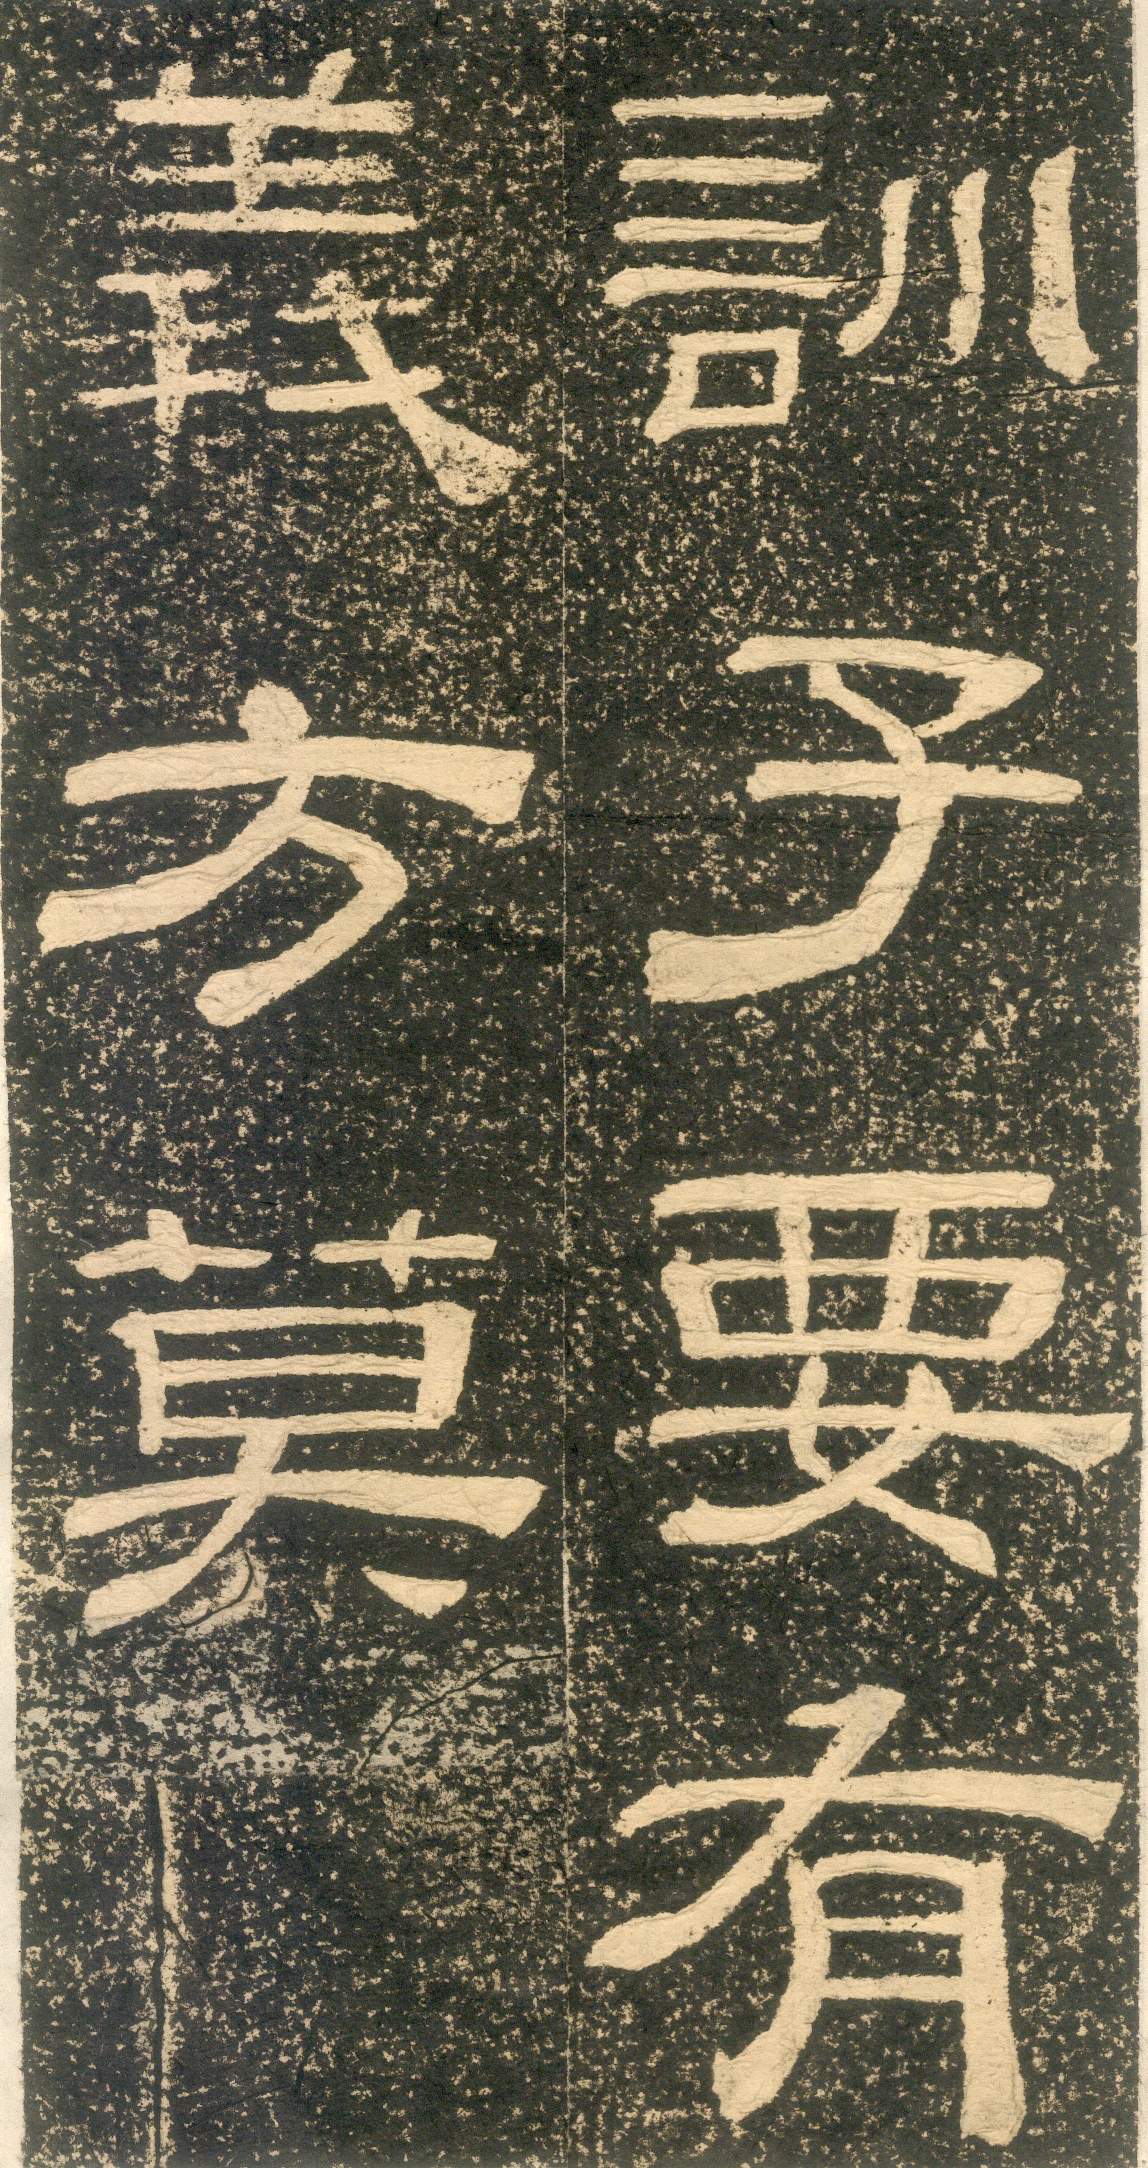 訓子要有
義方莫